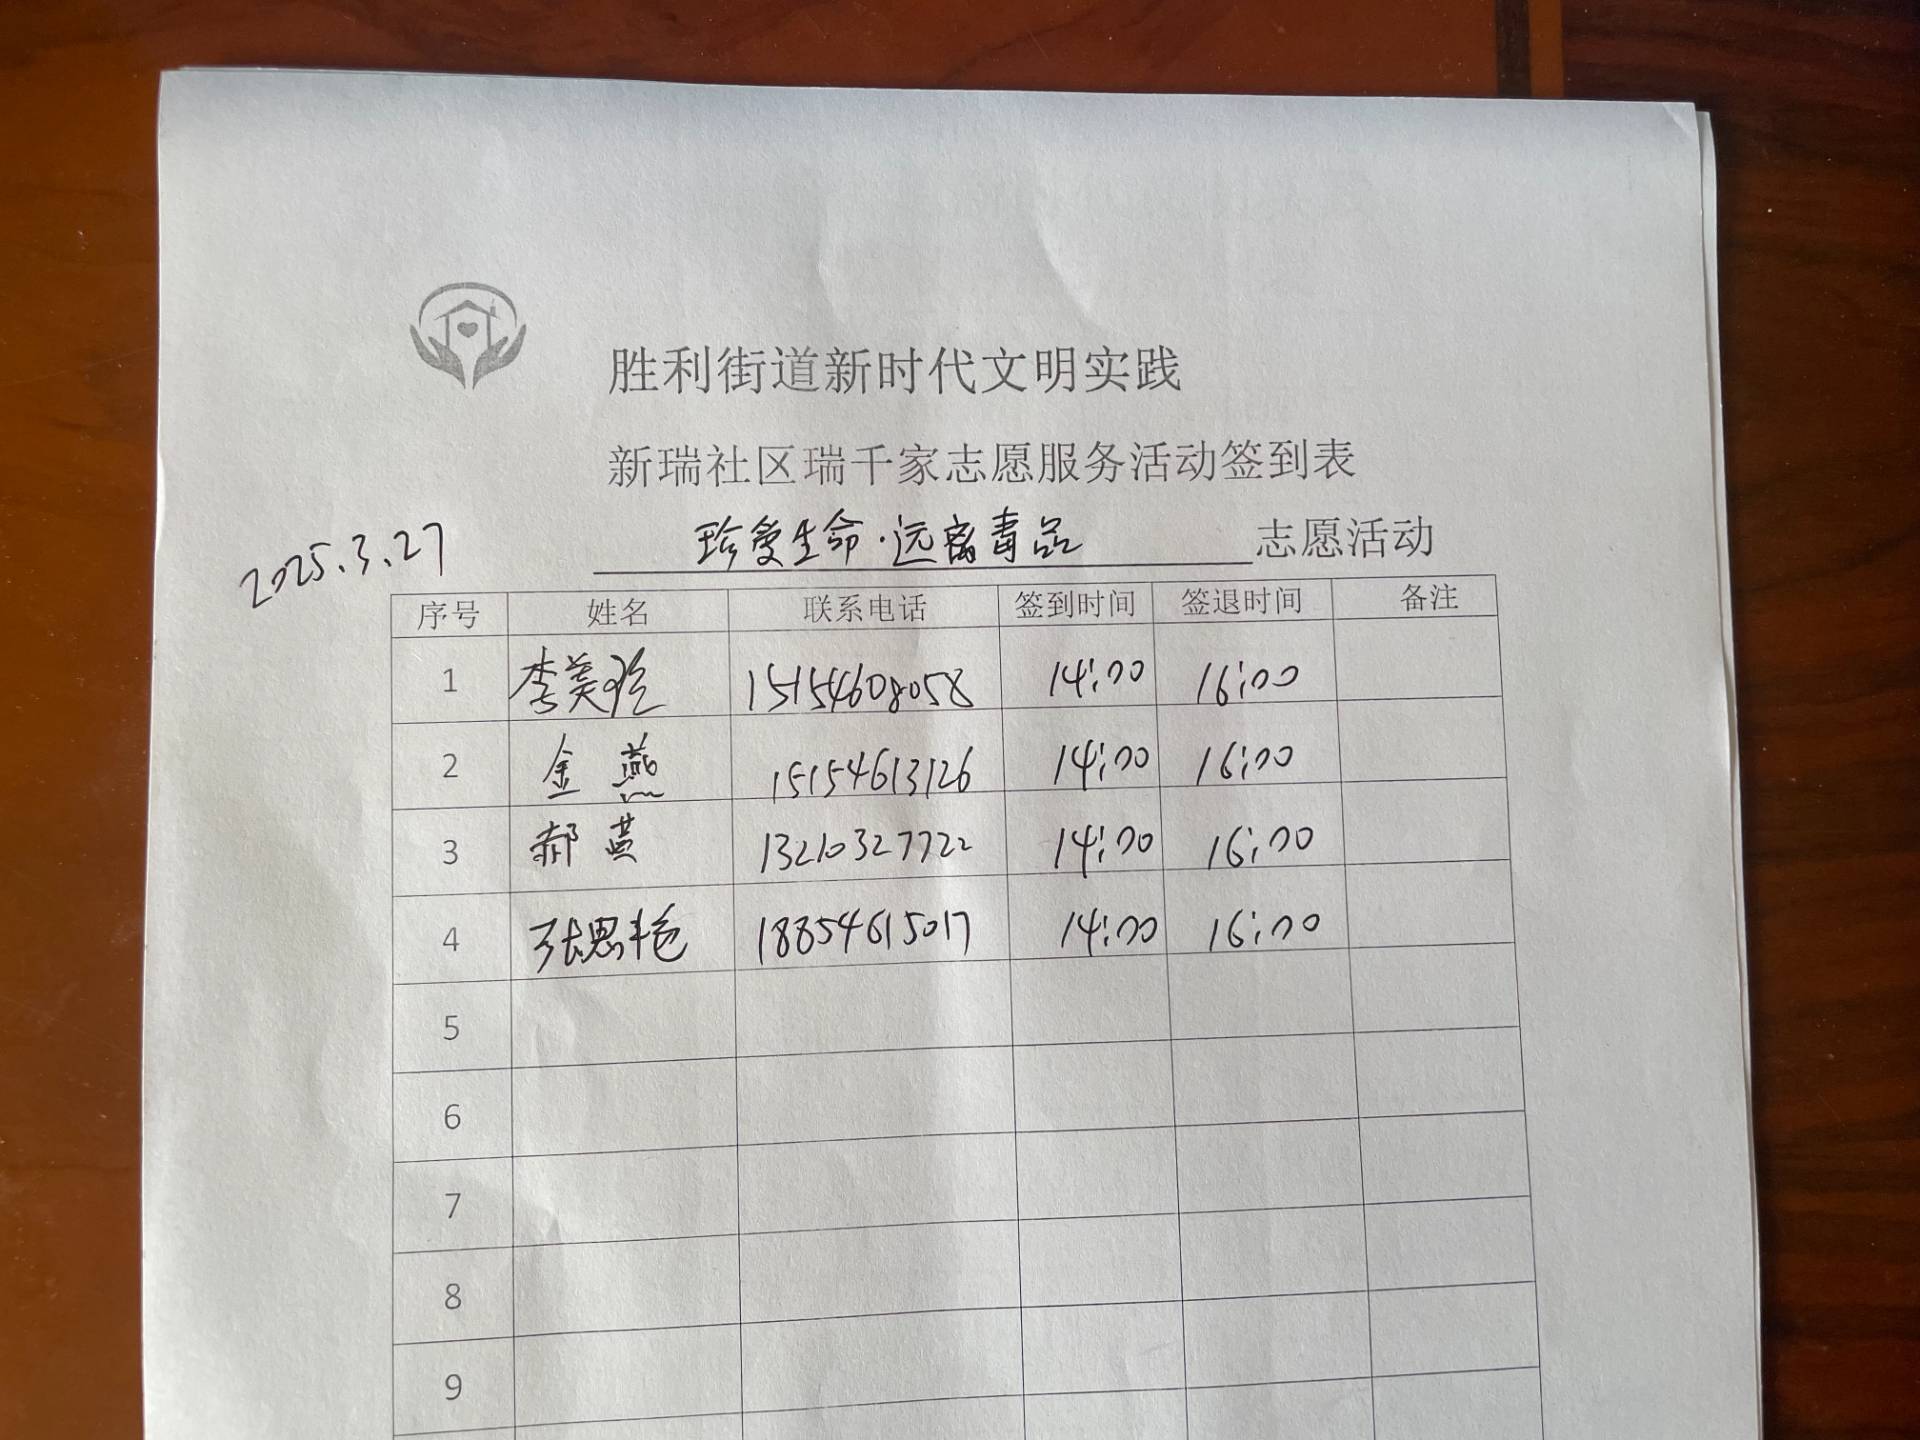 胜利街道新时代文明实践
新瑞社区瑞千家志愿服务活动签到表
2025.3.27
珍爱生命·远离毒品 志愿活动
序号 姓名 联系电话 签到时间 签退时间 备注
1 李美玲 15154608058 14:00 16:00
2 金燕 15154613126 14:00 16:00
3 郝 13210327722 14:00 16:00
4 张思艳 18854615017 14:00 16:00
5
6
7
8
9